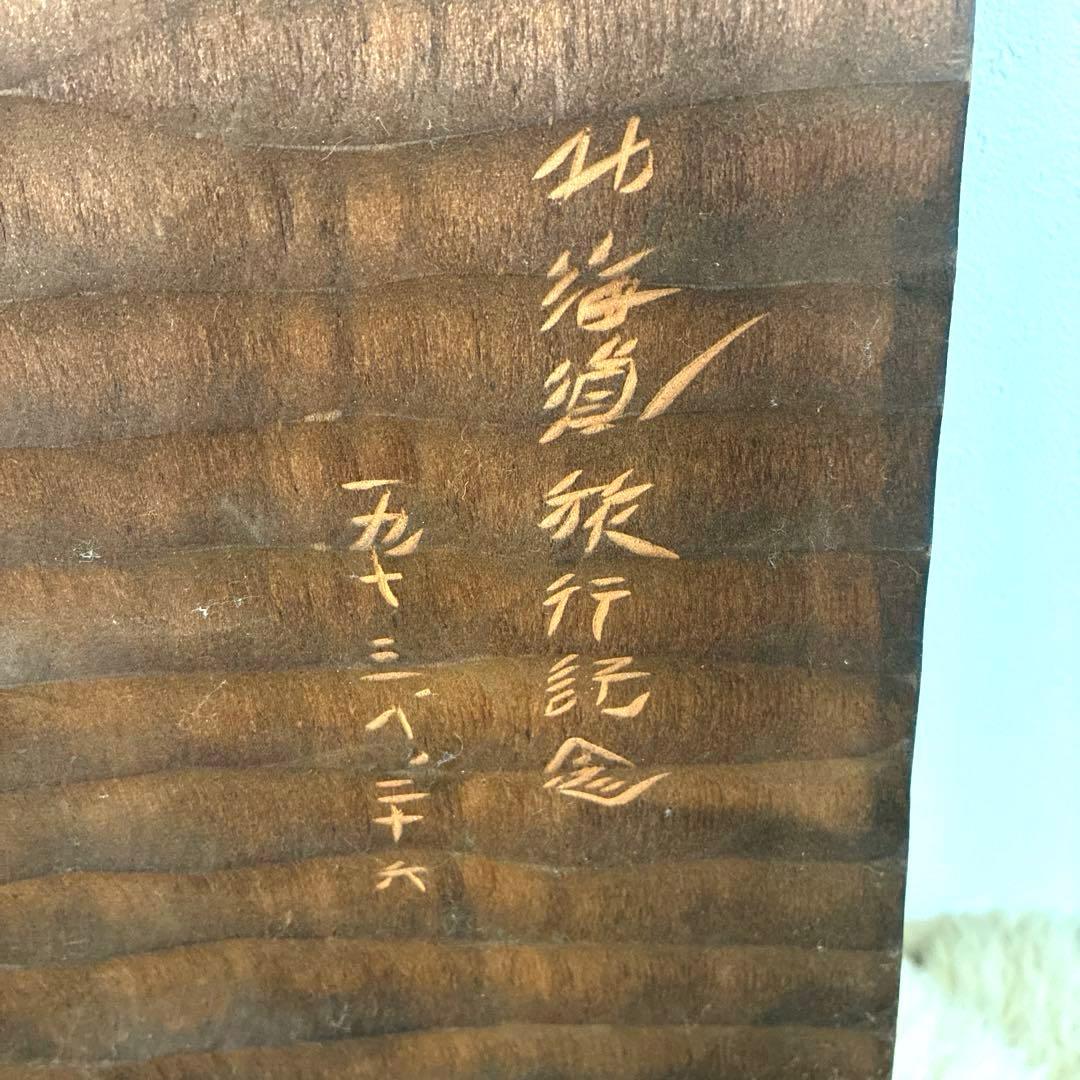 北海道旅行記念
一九七三、八、二十六